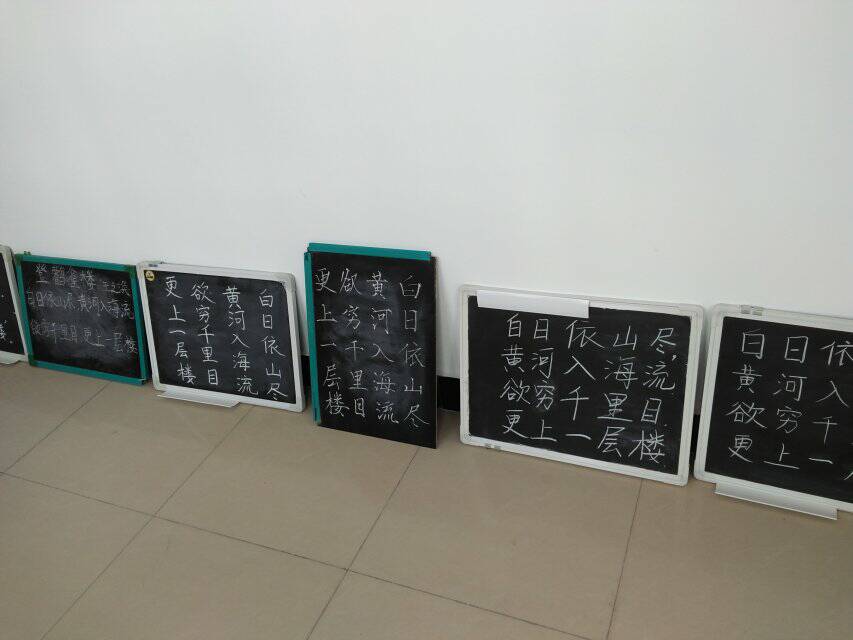 登鹳雀楼 王之涣
白日依山尽黄河入海流
欲穷千里目更上一层楼
白日依山尽
黄河入海流
欲穷千里目
更上一层楼
白日依山尽
黄河入海流
欲穷千里目
更上一层楼
白日依山尽,
黄河入海流
欲穷千里目
更上一层楼
白日依
黄河入
欲穷千
更上一